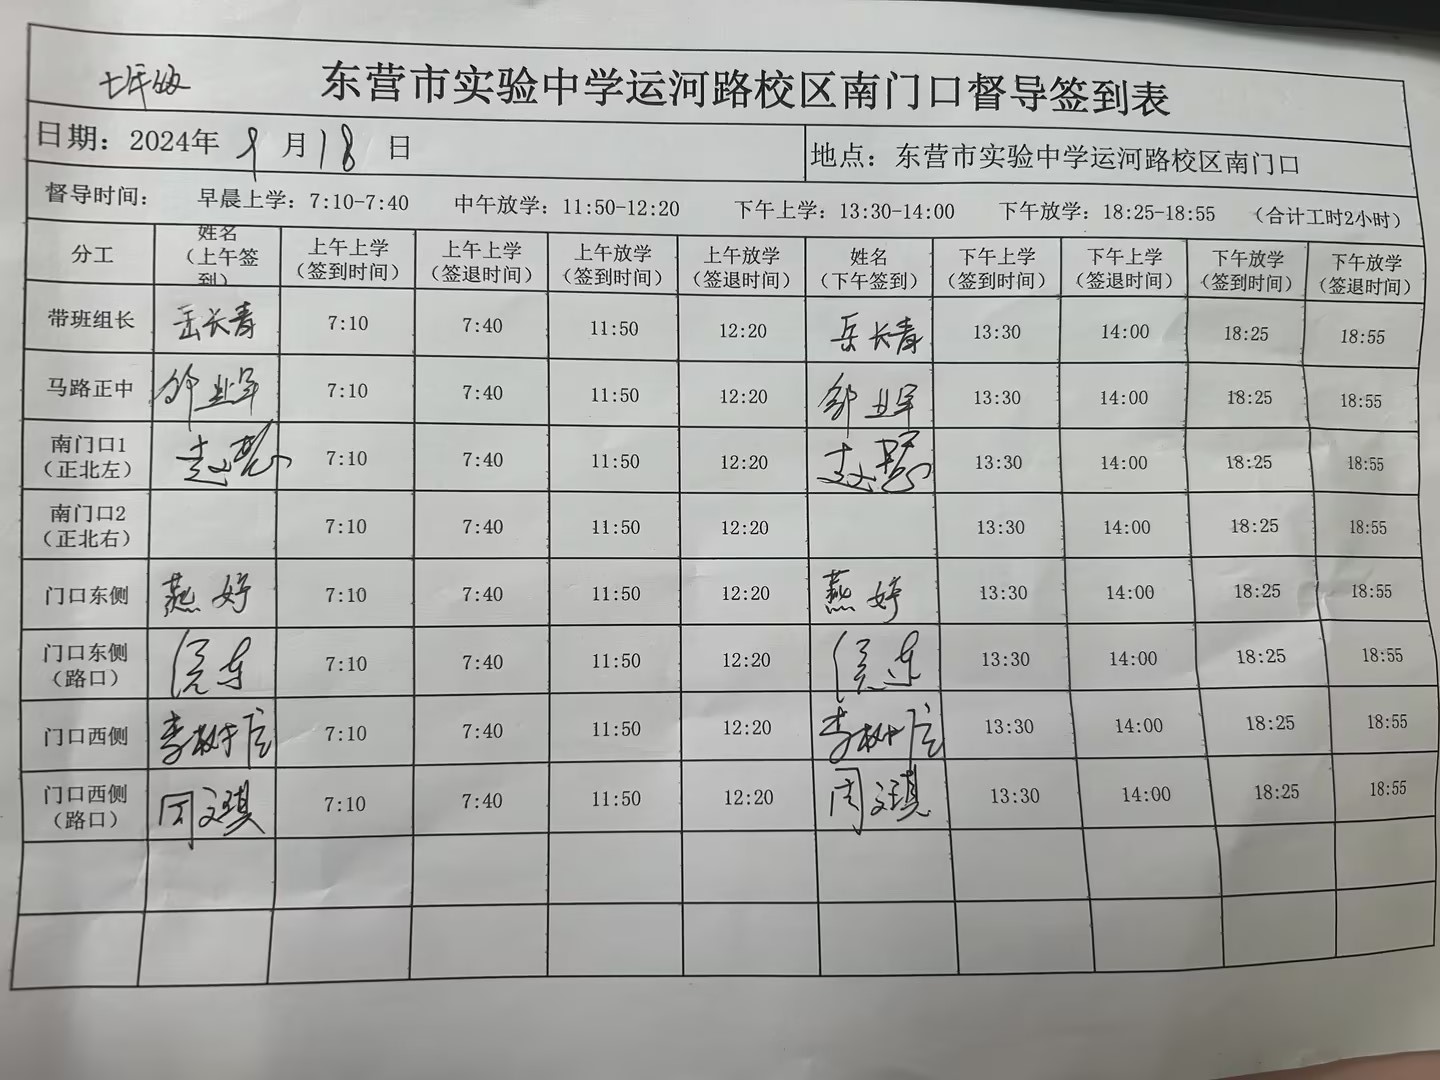 七年级 东营市实验中学运河路校区南门口督导签到表
日期：2024年 9 月 18 日 地点：东营市实验中学运河路校区南门口
督导时间： 早晨上学：7:10-7:40 中午放学：11:50-12:20 下午上学：13:30-14:00 下午放学：18:25-18:55 （合计工时2小时）
分工 姓名（上午签到） 上午上学（签到时间） 上午上学（签退时间） 上午放学（签到时间） 上午放学（签退时间） 姓名（下午签到） 下午上学（签到时间） 下午上学（签退时间） 下午放学（签到时间） 下午放学（签退时间）
带班组长 岳长青 7:10 7:40 11:50 12:20 岳长青 13:30 14:00 18:25 18:55
马路正中 邹业军 7:10 7:40 11:50 12:20 邹业军 13:30 14:00 18:25 18:55
南门口1（正北左） 赵 7:10 7:40 11:50 12:20 赵 13:30 14:00 18:25 18:55
南门口2（正北右） 7:10 7:40 11:50 12:20 13:30 14:00 18:25 18:55
门口东侧 燕婷 7:10 7:40 11:50 12:20 燕婷 13:30 14:00 18:25 18:55
门口东侧（路口） 7:10 7:40 11:50 12:20 13:30 14:00 18:25 18:55
门口西侧 李树 7:10 7:40 11:50 12:20 李树 13:30 14:00 18:25 18:55
门口西侧（路口） 周文琪 7:10 7:40 11:50 12:20 周文琪 13:30 14:00 18:25 18:55